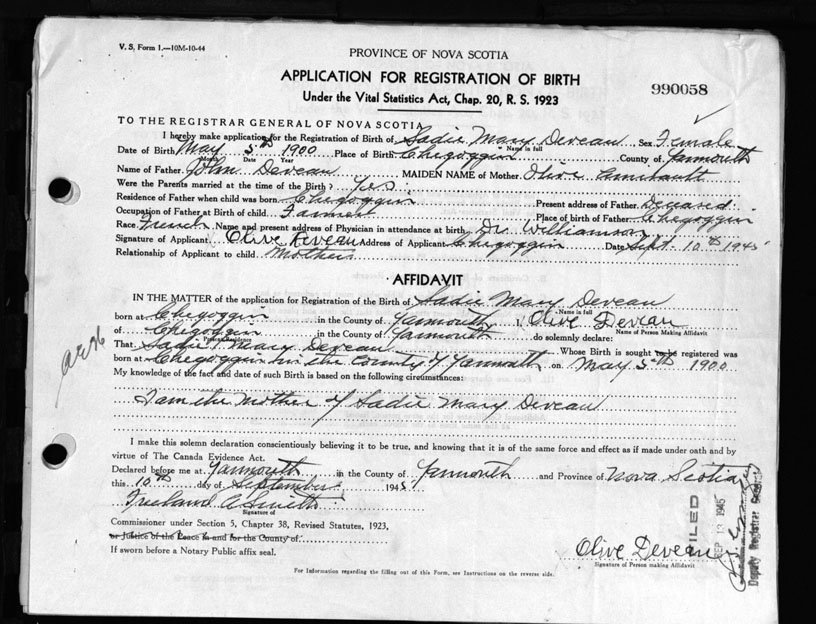 V. S. Form 1.—10M-10-44
PROVINCE OF NOVA SCOTIA
APPLICATION FOR REGISTRATION OF BIRTH
990058
Under the Vital Statistics Act, Chap. 20, R. S. 1923
TO THE REGISTRAR GENERAL OF NOVA SCOTIA
I hereby make application for the Registration of Birth of Sadie Mary Deveau Sex Female
Name in full
Date of Birth May 5th 1900 Place of Birth Chegoggin County of Yarmouth
Month Date Year
Name of Father John Deveau MAIDEN NAME of Mother Olive Amirault
Were the Parents married at the time of the Birth? Yes.
Residence of Father when child was born Chegoggin Present address of Father Deceased.
Occupation of Father at Birth of child Farmer Place of birth of Father Chegoggin
Race French Name and present address of Physician in attendance at birth Dr. Williamson
Signature of Applicant Olive Deveau Address of Applicant Chegoggin Date Sept. 10th 1945
Relationship of Applicant to child Mother
AFFIDAVIT
IN THE MATTER of the application for Registration of the Birth of Sadie Mary Deveau
Name in full
born at Chegoggin in the County of Yarmouth I, Olive Deveau
Name of Person Making Affidavit
of Chegoggin in the County of Yarmouth do solemnly declare:
Residence
That Sadie Mary Deveau Whose Birth is sought to be registered was
born at Chegoggin in the County of Yarmouth on May 5th 1900
My knowledge of the fact and date of such Birth is based on the following circumstances:
I am the mother of Sadie Mary Deveau
I make this solemn declaration conscientiously believing it to be true, and knowing that it is of the same force and effect as if made under oath and by
virtue of The Canada Evidence Act.
Declared before me at Yarmouth in the County of Yarmouth and Province of Nova Scotia
this 10th day of September 1945
Freeland A Smith
Signature of
Commissioner under Section 5, Chapter 38, Revised Statutes, 1923,
or Justice of the Peace in and for the County of
If sworn before a Notary Public affix seal.
Olive Deveau
Signature of Person making Affidavit
For Information regarding the filling out of this Form, see Instructions on the reverse side.
FILED
SEP 13 1945
Deputy Registrar General